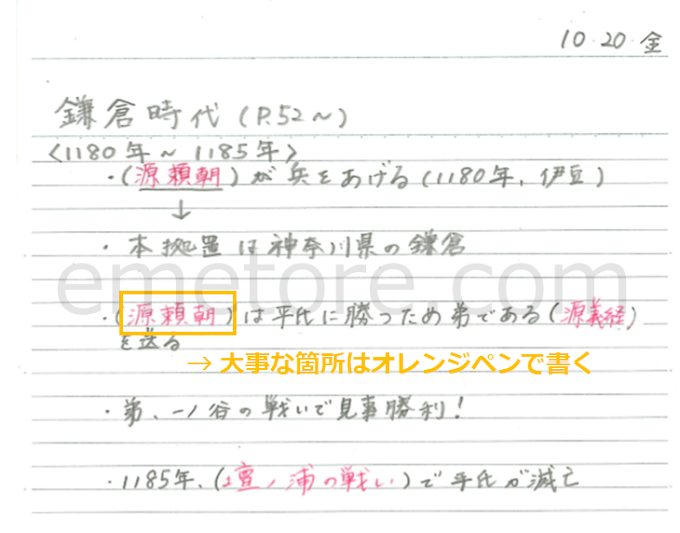 10.20.金
鎌倉時代 (P.52~)
<1180年~1185年>
・(源頼朝)が兵をあげる(1180年、伊豆)
↓
・本拠置は神奈川県の鎌倉
emetore.com
・(源頼朝)は平氏に勝つため弟である(源義経)
を送る
→ 大事な箇所はオレンジペンで書く
・弟、一ノ谷の戦いで見事勝利!
・1185年、(壇ノ浦の戦い)で平氏が滅亡